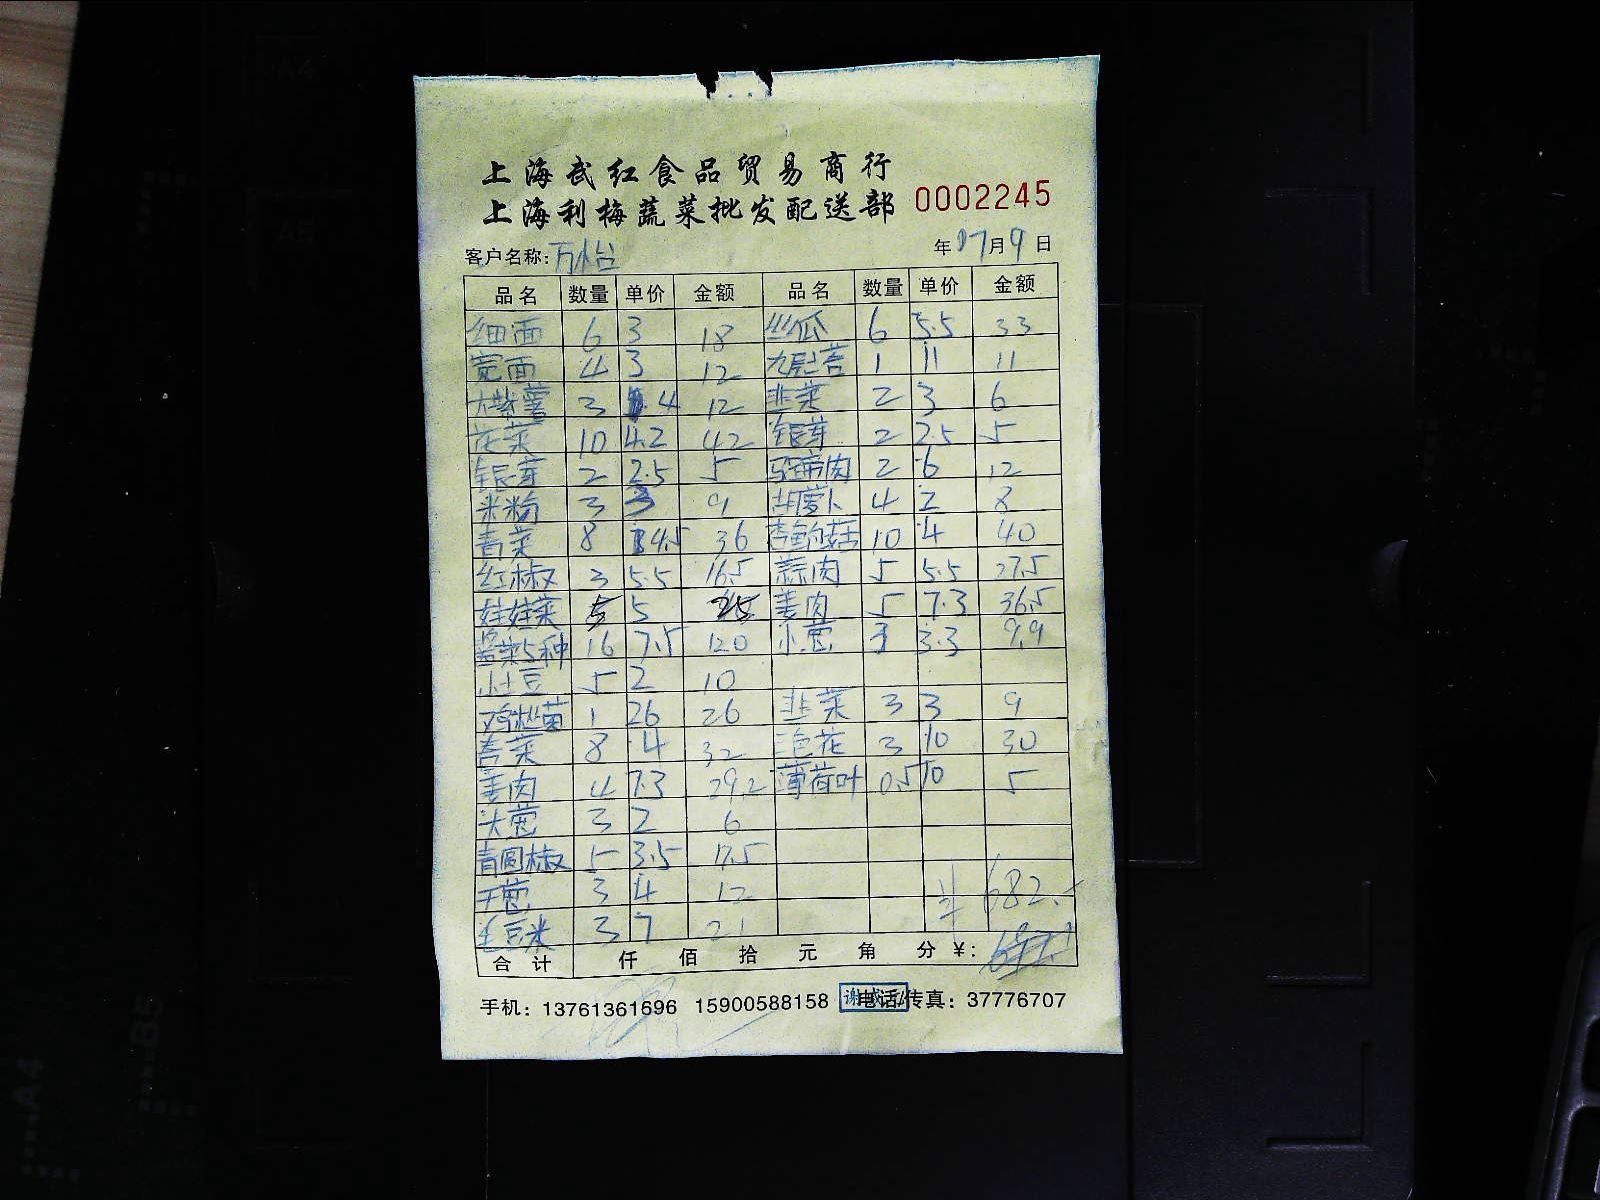 上海武红食品贸易商行
上海利梅蔬菜批发配送部 0002245
客户名称: 万怡 年 07月9日
品名 数量 单价 金额 品名 数量 单价 金额
细面 6 3 18 丝瓜 6 5.5 33
宽面 4 3 12 九层塔 1 11 11
大紫薯 3 4 12 韭菜 2 3 6
花菜 10 4.2 42 银芽 2 2.5 5
银芽 2 2.5 5 马蹄肉 2 6 12
米粉 3 3 9 胡萝卜 4 2 8
青菜 8 4.5 36 杏鲍菇 10 4 40
红椒 3 5.5 16.5 蒜肉 5 5.5 27.5
娃娃菜 5 5 25 姜肉 5 7.3 36.5
酱菜5种 16 7.5 120 小葱 3 3.3 9.9
小土豆 5 2 10
鸡枞菌 1 26 26 韭菜 3 3 9
杏菜 8 4 32 三色花 3 10 30
姜肉 4 7.3 29.2 薄荷叶 0.5 10 5
大葱 3 2 6
青圆椒 5 3.5 17.5
干葱 3 4 12 682.
毛豆米 3 7 21
合计 仟 佰 拾 元 角 分 ¥:
手机: 13761361696 15900588158 电话/传真: 37776707